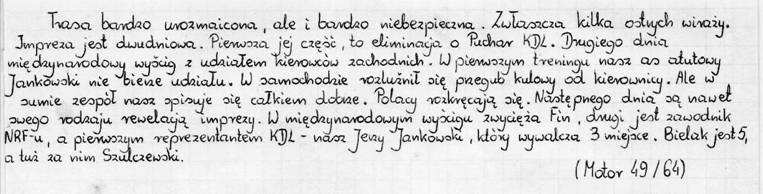 Trasa bardzo urozmaicona, ale i bardzo niebezpieczna. Zwłaszcza kilka ostrych wiraży.
Impreza jest dwudniowa. Pierwsza jej część, to eliminacja o Puchar KDL. Drugiego dnia
międzynarodowy wyścig z udziałem kierowców zachodnich. W pierwszym treningu nasz as atutowy
Jankowski nie bierze udziału. W samochodzie rozluźnił się przegub kulowy od kierownicy. Ale w
sumie zespół nasz spisuje się całkiem dobrze. Polacy rozkręcają się. Następnego dnia są nawet
swego rodzaju rewelacją imprezy. W międzynarodowym wyścigu zwycięża Fin, drugi jest zawodnik
NRF-u, a pierwszym reprezentantem KDL - nasz Jerzy Jankowski, który wywalcza 3 miejsce. Bielak jest 5,
a tuż za nim Szulczewski.
(Motor 49/64)